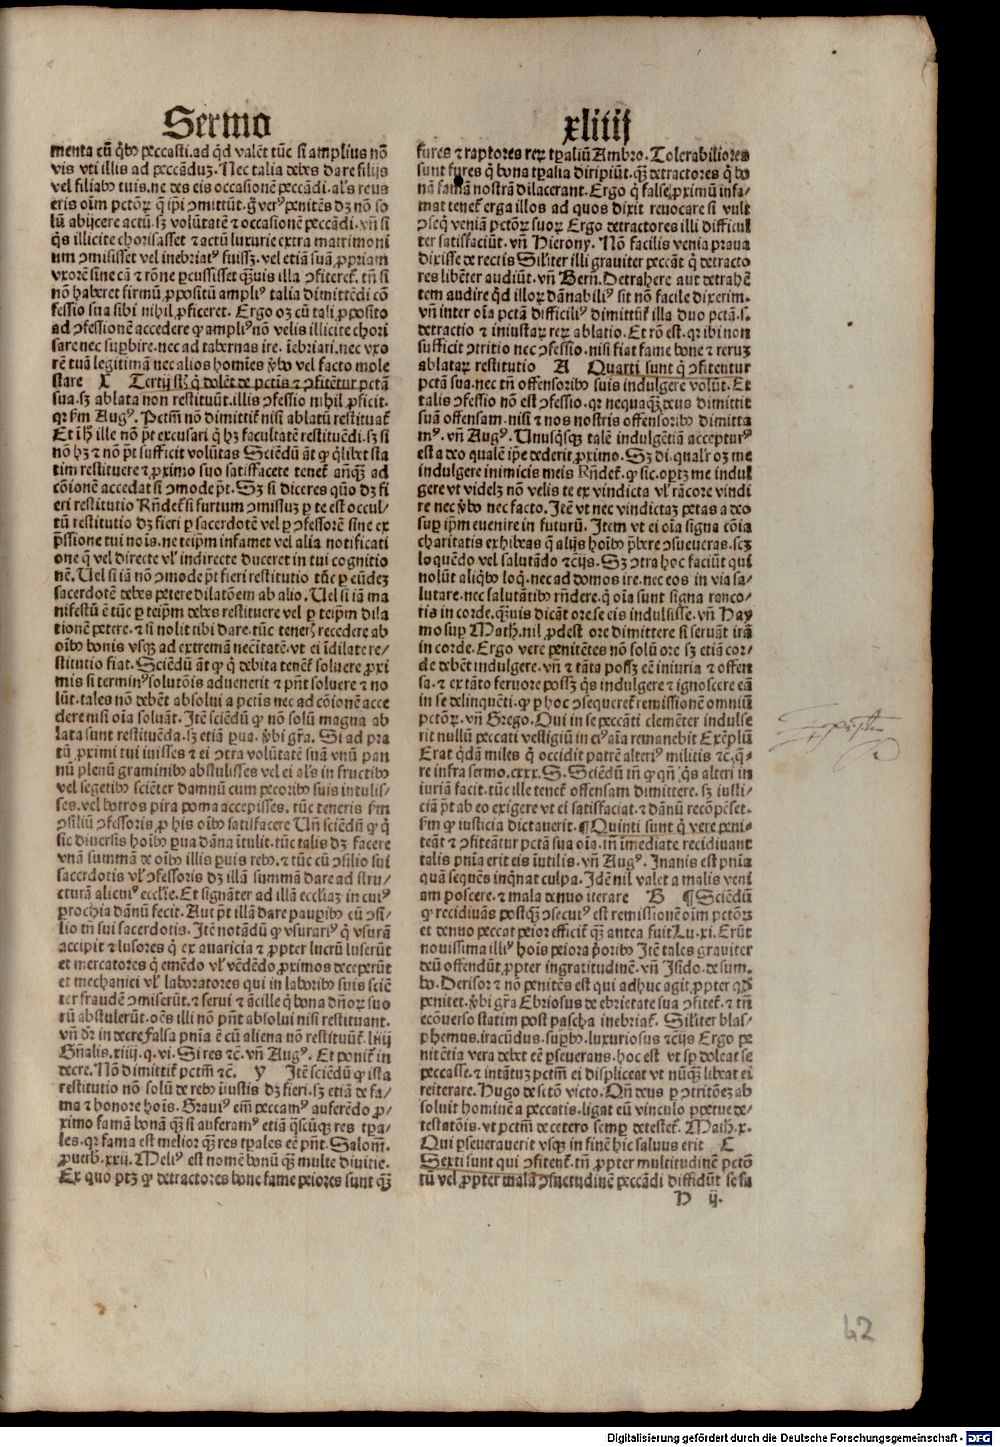 Sermo xliiij
menta cū q̇bꝰ peccasti. ad qd valēt tūc si amplius nō
vis vti illis ad peccāduꝫ. Nec talia debes dare filijs
vel filiabꝰ tuis. ne des eis occasionē peccādi. als reus
eris oīm pctōꝝ q̄ ip̄i cōmittūt. g̊ verꝰ penitēs dꝫ nō so
lū abijcere actū. sꝫ volūtatē ⁊ occasionē peccādi. vn̄ si
q̇s illicite chorisasset ⁊ actū luxurie extra matrimoni
um ꝯmisisset vel inebriatꝰ fuissꝫ. vel etiā suā ꝓpriam
vxorē sine cā ⁊ rōne ꝑcussisset qͣꝫuis illa ꝯfiteret᷑. tn̄ si
nō haberet firmū ꝓpositū ampliꝰ talia dimittēdi cō
fessio sua sibi nihil ꝓficeret. Ergo oꝫ cū tali ꝓposito
ad ꝯfessionē accedere ꝙ ampliꝰ nō velis illicite chori
sare nec suꝑbire. nec ad tabernas ire. īebriari. nec vxo
rē tuā legitimā nec alios homīes v̄bo vel facto mole
stare X Tertij st̄ q̇ dolēt de pctis ⁊ ꝯfitētur pctā
sua. sꝫ ablata non restituūt. illis ꝯfessio nihil ꝓficit.
qꝛ fm Augꝰ. Pctm̄ nō dimittit᷑ nisi ablatū restituat᷑
Et ī hͦ ille nō pt excusari q̇ hꝫ facultatē restituēdi. sꝫ si
nō hꝫ ⁊ nō pt sufficit volūtas Sciēdū āt ꝙ q̇libet sta
tim restituere ⁊ ꝓximo suo satisfacere tenet᷑ anq̄ꝫ ad
cōionē accedat si ꝯmode pt. Sꝫ si diceres quō dꝫ fi
eri restitutio Rn̄det᷑ si furtum ꝯmissuꝫ ꝑ te est occul/
tū restitutio dꝫ fieri ꝑ sacerdotē vel ꝑ ꝯfessorē sine ex
p̄ssione tui nois. ne teip̄m infamet vel alia notificati
one q̄ vel directe vl̓ indirecte duceret in tui cognitio
nē. Uel si iā nō ꝯmode pt fieri restitutio tūc ꝑ eūdeꝫ
sacerdotē debes petere dilatōem ab alio. Uel si iā ma
nifestū ē tūc ꝑ teip̄m debes restituere vel ꝑ teip̄m dila
tionē petere. ⁊ si nolit tibi dare. tūc teneris recedere ab
oībꝰ bonis vsqꝫ ad extremā necītatē. vt ei īdilate re/
stitutio fiat. Sciēdū āt ꝙ q̇ debita tenet᷑ soluere ꝓxi
mis si terminꝰ solutōis aduenerit ⁊ pn̄t soluere ⁊ no
lūt. tales nō debēt absolui a pctis nec ad cōionē acce
dere nisi oīa soluāt. Itē sciēdū ꝙ nō solū magna ab
lata sunt restituēda. sꝫ etiā ꝑua. v̄bi gr̄a. Si ad pra
tū ꝓximi tui iuisses ⁊ ei ꝯtra volūtatē suā vnū pan
nū plenū graminibꝰ abstulisses vel ei als in fructibꝰ
vel segetibꝰ sciēter damnū cum pecoribꝰ suis intulis/
ses. vel botros pira poma accepisses. tūc teneris fm
ꝯsiliū ꝯfessoris ꝓ his oībꝰ satisfacere Un̄ sciēdū ꝙ q̇
sic diuersis hoībꝰ ꝑua dāna ītulit. tūc talis dꝫ facere
vnā summā de oībꝰ illis ꝑuis rebꝰ. ⁊ tūc cū ꝯsilio sui
sacerdotis vl̓ ꝯfessoris dꝫ illā summā dare ad stru/
cturā alicuiꝰ eccl̓ie. Et signāter ad illā eccl̓iaꝫ in cuiꝰ
ꝑrochia dānū fecit. Aut pt illā dare pauꝑibꝰ cū ꝯsi/
lio tn̄ sui sacerdotis. Itē notādū ꝙ vsurariꝰ q̇ vsurā
accipit ⁊ lusores q̇ ex auaricia ⁊ ꝓpter lucrū luserūt
et mercatores q̇ emēdo vl̓ vēdēdo ꝓximos deceperūt
et mechanici vl̓ laboratores qui in laboribꝰ suis sciē
ter fraudē ꝯmiserūt. ⁊ serui ⁊ ācille q̇ bona dn̄oꝝ suo
rū abstulerūt. oēs illi nō pn̄t absolui nisi restituant.
vn̄ dr̄ in decre falsa pnīa ē cū aliena nō restituūt᷑.
Gn̄alis. xiiij. q. vi. Si res ⁊c. vn̄ Augꝰ. Et ponit᷑ in
decre. Nō dimittit᷑ pctm̄ ⁊c. Y Itē sciēdū ꝙ ista
restitutio nō solū de rebꝰ iustis dꝫ fieri. sꝫ etiā de fa/
ma ⁊ honore hoīs. Grauiꝰ em̄ peccamꝰ auferēdo ꝓ/
ximo famā bonā qͣꝫ si auferamꝰ etiā q̄scūqꝫ res tꝑa/
les. qꝛ fama est melior qͣꝫ res tꝑales eē pn̄t. Salom̄.
ꝓuerb. xxij. Meliꝰ est nomē bonū qͣꝫ multe diuitie.
Ex quo ptꝫ ꝙ detractores bone fame peiores sunt qͣꝫ
fures ⁊ raptores reꝝ tꝑaliū Ambro. Tolerabiliores
sunt fures q̇ bona tꝑalia diripiūt. qͣꝫ detractores q̇ bo
nā famā nostrā dilacerant. Ergo q̇ false ꝓximū infa/
mat tenet᷑ erga illos ad quos dixit reuocare si vult
ꝯseq̇ veniā pctōꝝ suoꝝ Ergo detractores illi difficul
ter satisfaciūt. vn̄ Hierony. Nō facilis venia praua
dixisse de rectis Silīter illi grauiter peccāt q̇ detracto
res libēter audiūt. vn̄ Bern̄. Detrahere aut detrahē
tem audire qd illoꝝ dānabiliꝰ sit nō facile dixerim.
vn̄ inter oīa pctā difficiliꝰ dimittūt᷑ illa duo pctā. s.
detractio ⁊ iniustaꝝ reꝝ ablatio. Et rō est. qꝛ ibi non
sufficit ꝯtritio nec ꝯfessio. nisi fiat fame bone ⁊ reruꝫ
ablataꝝ restitutio A Quarti sunt q̇ ꝯfitentur
pctā sua. nec tn̄ offensoribꝰ suis indulgere volūt. Et
talis ꝯfessio nō est ꝯfessio. qꝛ nequaqͣꝫ deus dimittit
suā offensam. nisi ⁊ nos nostris offensoribꝰ dimitta
mꝰ. vn̄ Augꝰ. Unusq̇sqꝫ talē indulgētiā accepturꝰ
est a deo qualē ip̄e dederit ꝓximo. Sꝫ di. qualr̄ oꝫ me
indulgere inimicis meis Rn̄det᷑. ꝙ sic. oꝑtꝫ me indul
gere vt videlꝫ nō velis te ex vindicta vl̓ rācore vindi
re nec v̄bo nec facto. Itē vt nec vindictaꝫ petas a deo
suꝑ ip̄m euenire in futurū. Item vt ei oīa signa cōia
charitatis exhibeas q̄ alijs hoībꝰ p̄bere ꝯsueueras. scꝫ
loquēdo vel salutādo ⁊cijs. Sꝫ ꝯtra hoc faciūt qui
nolūt aliq̇bꝰ loq̇. nec ad domos ire. nec eos in via sa/
lutare. nec salutātibꝰ rn̄dere. q̄ oīa sunt signa ranco/
ris in corde. qͣꝫuis dicāt ore. se eis indulsisse. vn̄ Hay
mo suꝑ Math̓. nil ꝓdest ore dimittere si seruāt irā
in corde. Ergo vere penitētes nō solū ore sꝫ etiā cor/
de debēt indulgere. vn̄ ⁊ tāta possꝫ eē iniuria ⁊ offen
sa. ⁊ ex tāto feruore possꝫ q̇s indulgere ⁊ ignoscere eā
in se delinquēti. ꝙ ꝑ hoc ꝯsequeret᷑ remissionē omniū
pctōꝝ. vn̄ Grego. Qui in se peccāti clemēter indulse
rit nullū peccati vestigiū in eiꝰ aīa remanebit Exēplū
Erat q̇dā miles q̇ occidit patrē alteriꝰ militis ⁊c. q̄/
re infra sermo. cxxx. S. Sciēdū tn̄ ꝙ qn̄ q̇s alteri in
iuriā facit. tūc ille tenet᷑ offensam dimittere. sꝫ iusti/
ciā pt ab eo exigere vt ei satisfaciat. ⁊ dānū recōpēset.
fm ꝙ iusticia dictauerit. ¶Quinti sunt q̇ vere peni/
teāt ⁊ ꝯfiteātur pctā sua oīa. tn̄ īmediate recidiuant
talis pnīa erit eis īutilis. vn̄ Augꝰ. Inanis est pnīa
quā sequēs inqͥnat culpa. Idē nil valet a malis veni
am poscere. ⁊ mala denuo iterare B ¶Sciēdū
ꝙ recidiuās postqͣꝫ ꝯsecutꝰ est remissionē oīm pctōꝝ
et denuo peccat peior efficit᷑ qͣꝫ antea fuit Lu. xi. Erūt
nouissima illiꝰ hois peiora p̄oribꝰ Itē tales grauiter
deū offendūt ꝓpter ingratitudinē. vn̄ Isido. de sum.
bo. Derisor ⁊ nō penitēs est qui adhuc agit ꝓpter qd̓
penitet. v̄bi gr̄a Ebriosus de ebrietate sua ꝯfitet᷑. ⁊ tn̄
ecōuerso statim post pascha inebriat᷑. Silīter blas/
phemus. iracūdus. suꝑbꝰ. luxuriosus ⁊cijs Ergo pe
nitētia vera debet eē ꝑseuerans. hoc est vt sꝑ doleat se
peccasse. ⁊ intātuꝫ pctm̄ ei displiceat vt nūqͣꝫ libeat ei
reiterare. Hugo de sctō victo. Qn̄ deus ꝑ ꝯtritōeꝫ ab
soluit hominē a peccatis. ligat eū vinculo ꝑpetue de/
testatōis. vt pctm̄ decetero semꝑ detestet᷑. Math̓. x.
Qui ꝑseuerauerit vsqꝫ in finē hic saluus erit C
Sexti sunt qui ꝯfitent᷑. tn̄ ꝓpter multitudinē pctō
rū vel ꝓpter malā ꝯsuetudinē peccādi diffidūt se sa
H ij.
42
Digitalisierung gefördert durch die Deutsche Forschungsgemeinschaft - DFG